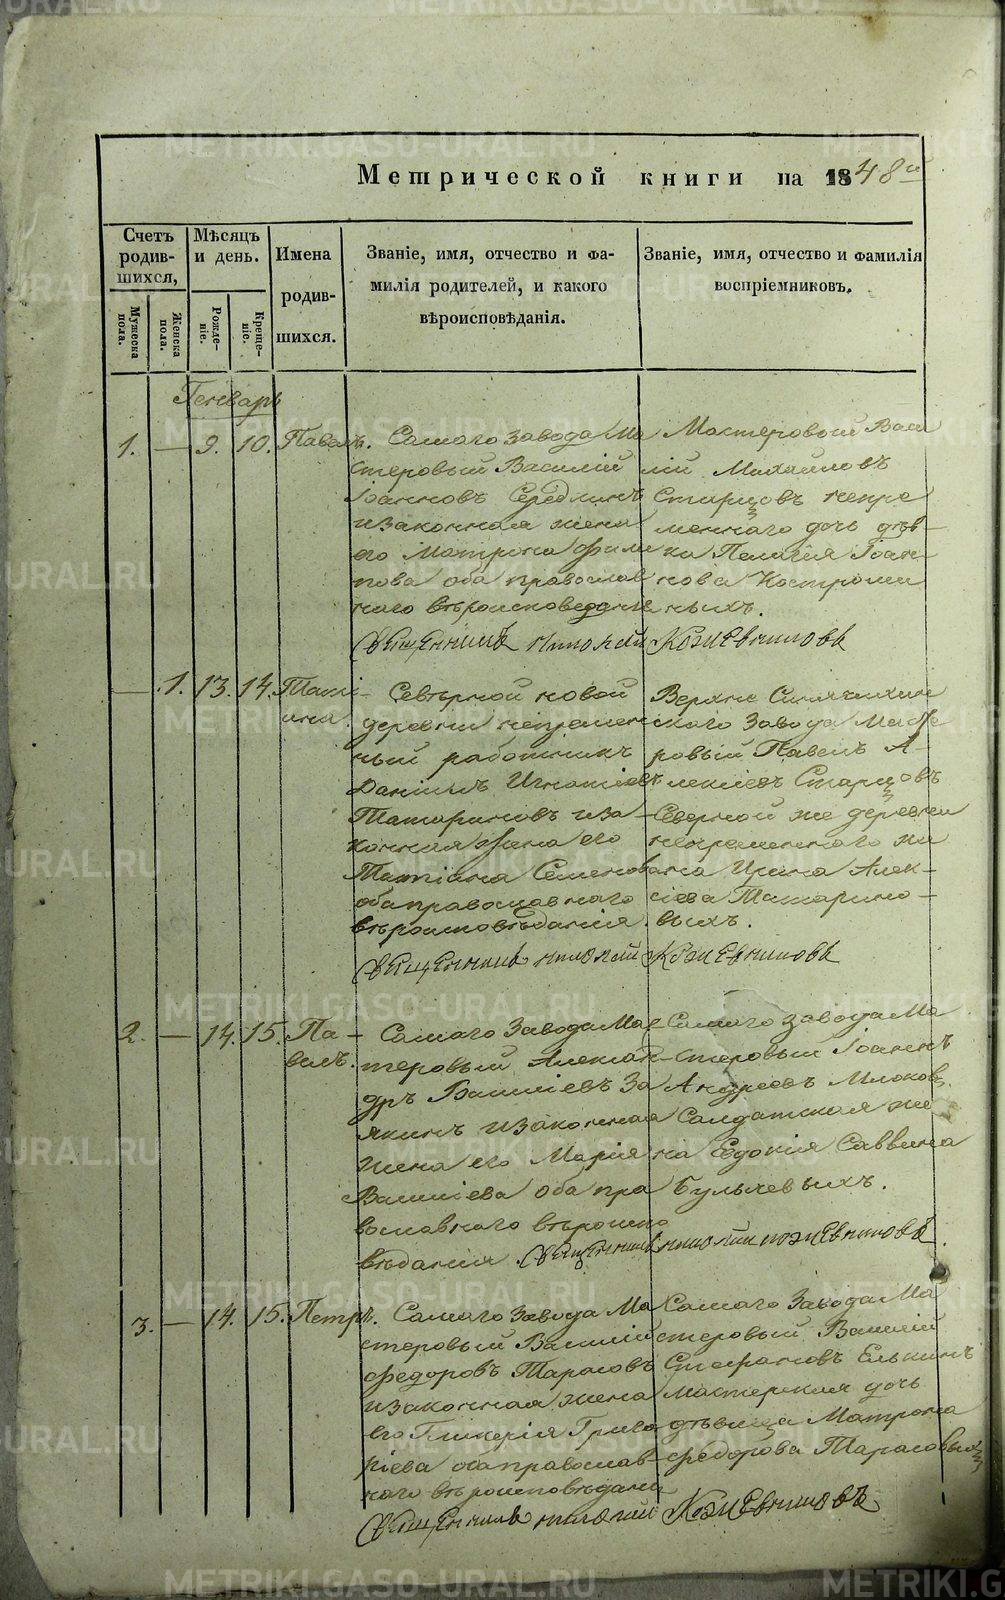 Метрической книги на 1848й
Счетъ родившихся,
Мѣсяцъ и день.
Имена родившихся.
Званіе, имя, отчество и фамилія родителей, и какого вѣроисповѣданія.
Званіе, имя, отчество и фамилія воспріемниковъ.
Мужеска пола.
Женска пола.
Рожденіе.
Крещеніе.
Генварь
1. — 9. 10. Павелъ.
Самаго завода ма
стеровый Василій
Іоанновъ Середкинъ
и законная жена
его Матрона Фили
пова оба православ
наго вѣроисповеданія
Мастеровый Васи
лій Михайловъ
Старцовъ непре
меннаго дочь дѣв–
ка Пелагія Іоан–
нова Костроми
ныхъ.
Священникъ Николай Кожевниковъ
— 1. 13. 14. Тати–
ана.
Севѣрной новой
деревни непремен
ный работникъ
Даніилъ Игнатіевъ
Татариновъ и за–
конная жена его
Татіана Семенова
оба православнаго
вѣроисповѣданія.
Верхне Синячихин
скаго Завода Масте
ровый Павелъ А–
лексіевъ Старцовъ
Северной же деревни
непременнаго же
на Ирина Алек–
сіева Татарино–
выхъ.
Священникъ Николай Кожевниковъ
2. — 14. 15. Па–
велъ.
Самаго Завода Мас
теровый Алексан–
дръ Василіевъ За
якинъ и законная
жена его Марія
Василіева оба пра
вославнаго вѣроиспо
вѣданія.
Самаго завода Ма
стеровый Іоаннъ
Андреевъ
Салдатская же
на Едокія Саввина
Булычевыхъ.
Священникъ Николай Кожевниковъ.
3. — 14. 15. Петръ.
Самаго Завода Ма
стеровый Василій
Федоровъ Тарасовъ
и законная жена
его Гликерія Григо
ріева оба православ–
наго вѣроисповѣданія
Самаго Завода Ма
стеровый Василій
Стефановъ Елькинъ
мастерская дочь
дѣвица Матрона
Федорова Тарасовыхъ
Священникъ Николай Кожевниковъ
METRIKI.GASO-URAL.RU